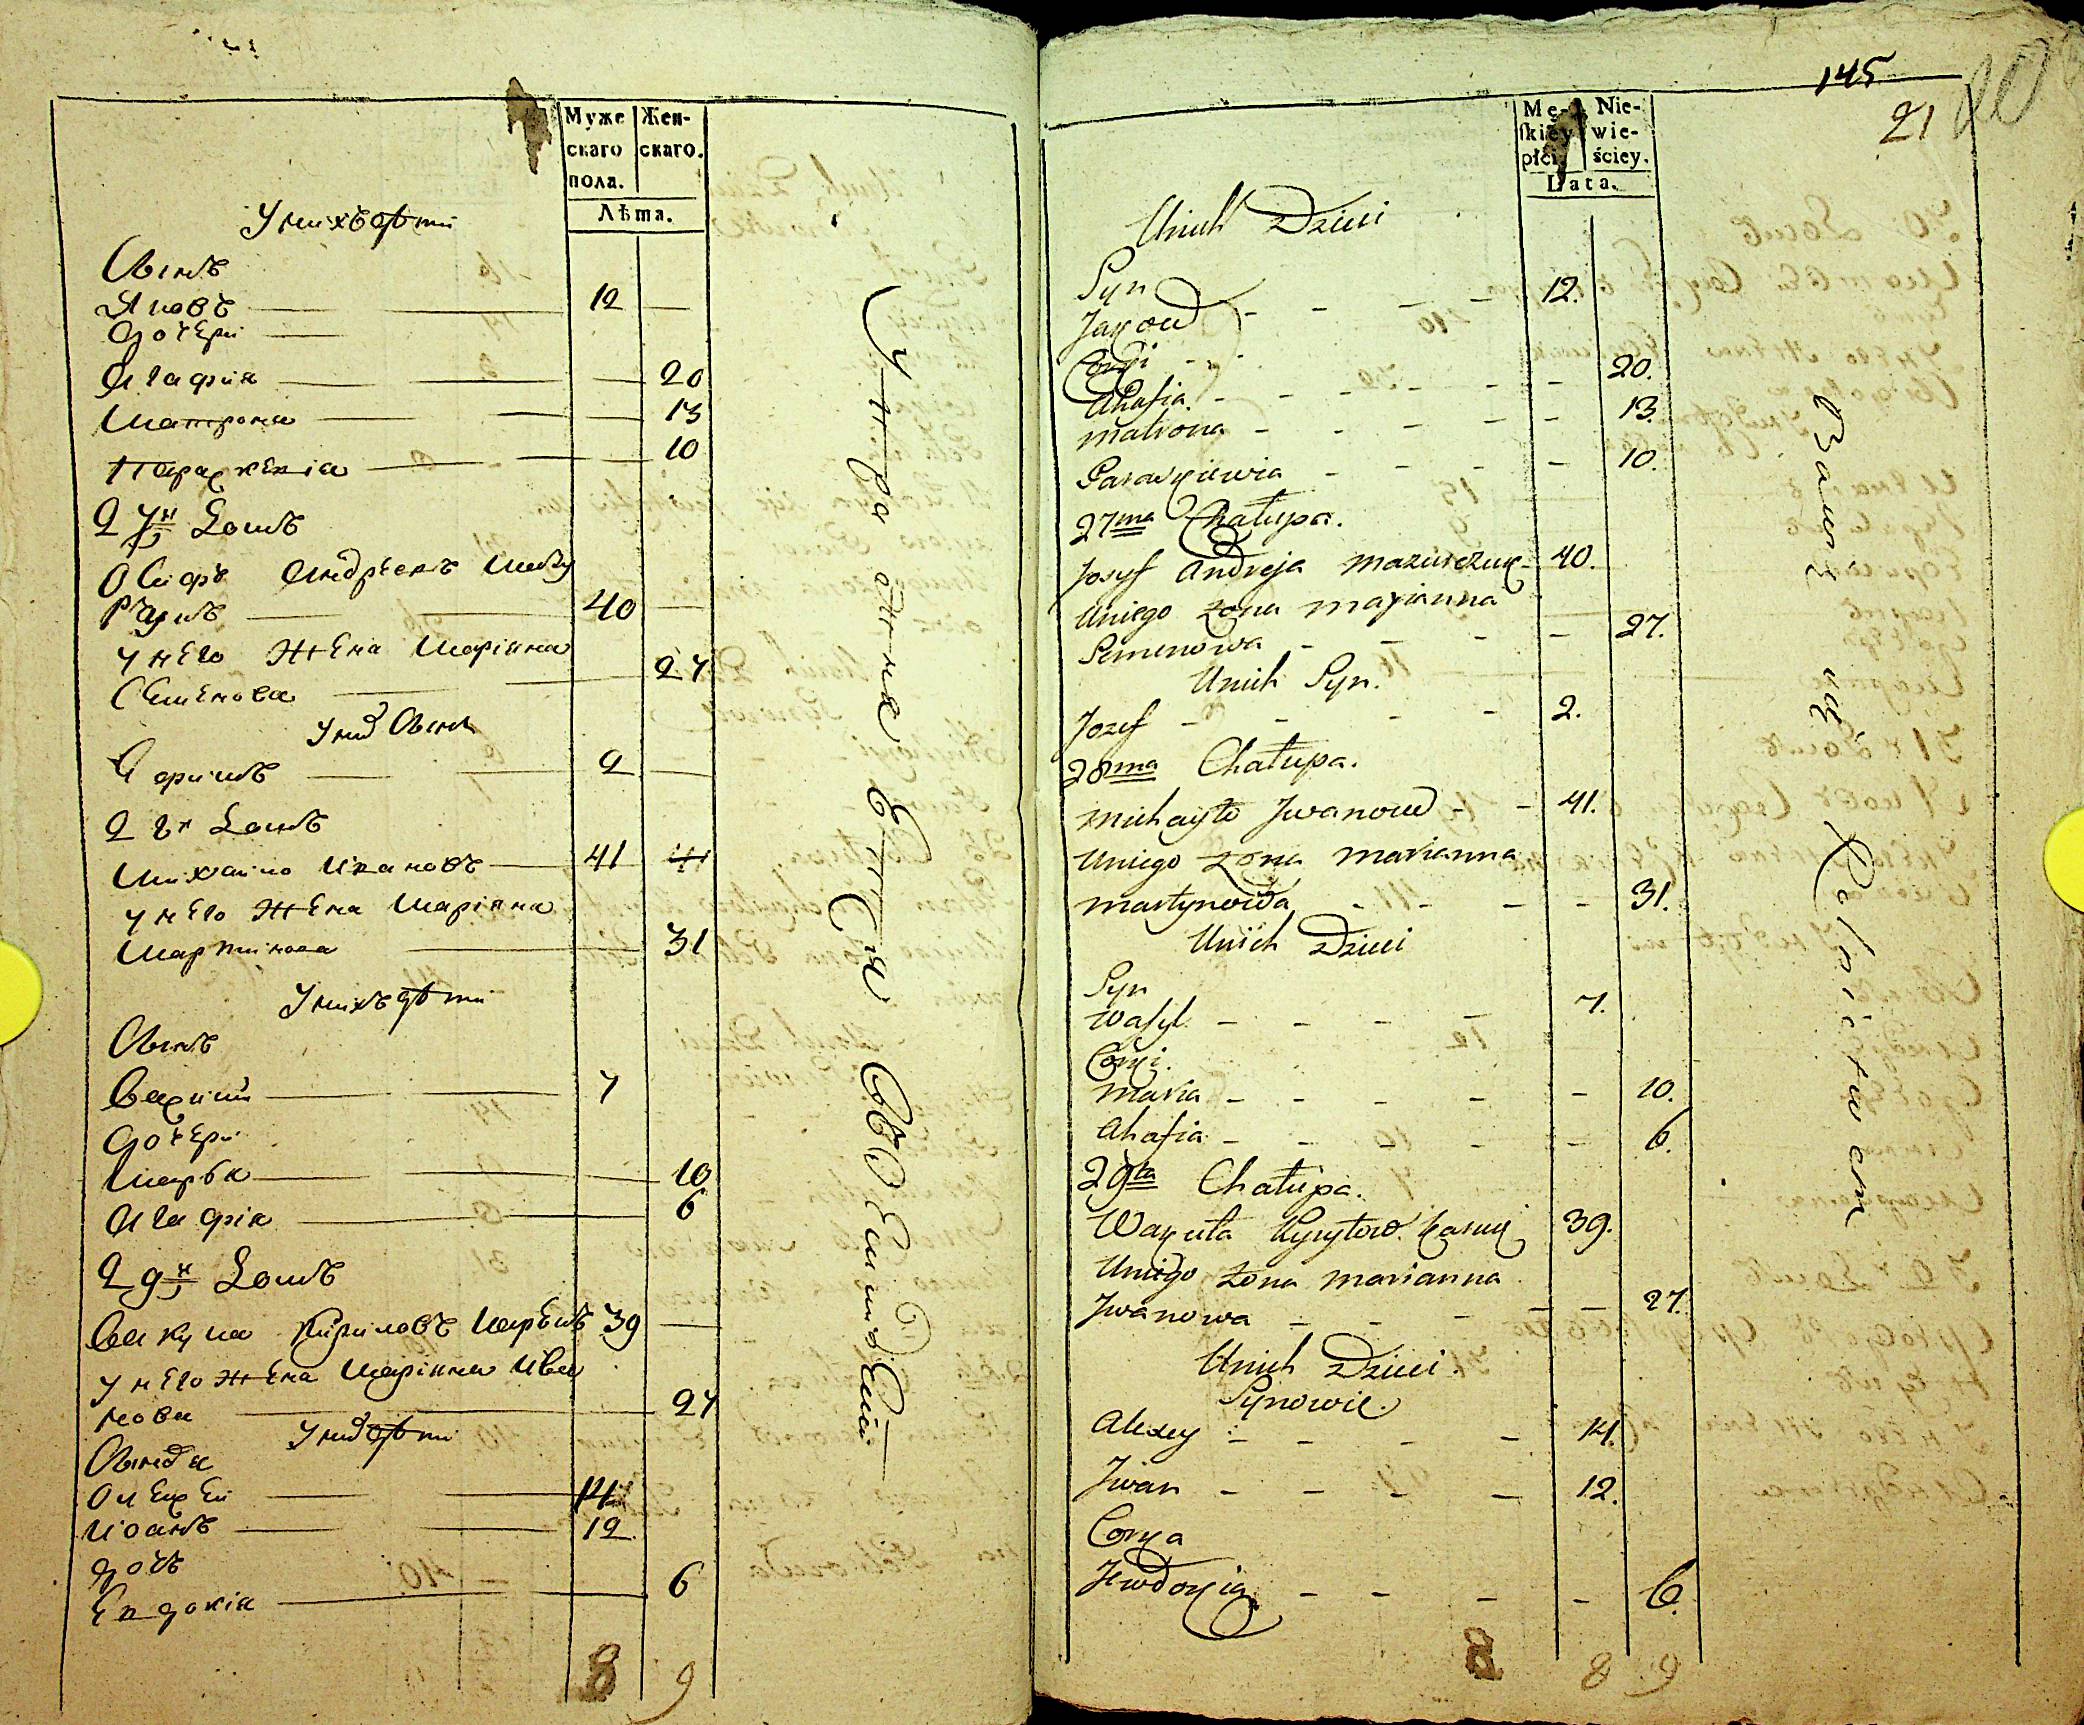 Муже
скаго
пола.
Жен-
скаго.
Лѣта.
У нихъ дѣти
Сынъ
Яковъ 12
Дочери
Агафия 20
Матрона 13
10
27я Домъ
Осифъ Андрѣевъ Мазу
рчукъ 40
у него жена Маріянна
Семенова 27
У них Сынъ
2
28 Домъ
Михайло Ивановъ 41
у него жена Маріянна
Мартинова 31
У нихъ дѣти
Сынъ
Василий 7
Дочери
Марья 10
Агафія 6
29я Домъ
Вакула Кириловъ 39
у него жена Маріянна Ива
нова 27
У них дѣти
Олексей 14
Иоанъ 12
дочь
Евдокія 6
8 9
145
21
20
Mę-
skiey
płci.
Nie-
wie-
ściey.
Lata.
Unich Dzieci
Syn
Jakow 12.
Corki
Ahafia 20.
Matrona 13.
Paraskiewia 10.
27ma Chałupa.
Josyf Andreja Mazurczuk 40.
Uniego żona Maryanna
Semenowa 27.
Unich Syn.
Jozef 2.
28ma Chałupa.
Michayło Jwanow 41.
Uniego żona Marianna
Martynowa 31.
Unich Dzieci
Syn
Wasyl. 7.
Corki.
Maria 10.
Ahafia 6.
29ta Chałupa.
Wakuła Kyryłow 39.
Uniego żona Marianna
Jwanowa 27.
Unich Dzieci.
Synowie.
Alexey 14.
Jwan 12.
Corka
Jewdokia 6.
8 8 9